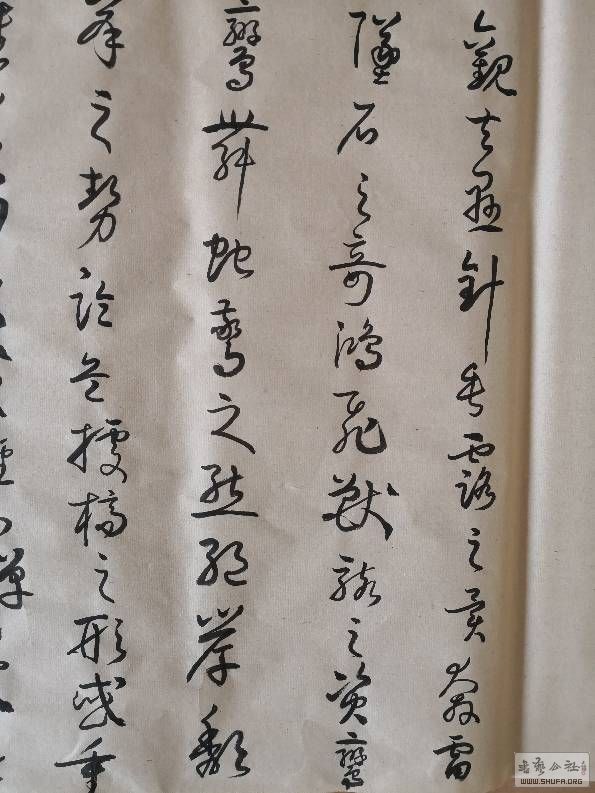 觀夫懸針垂露之異奔雷
墜石之奇鴻飛獸駭之資鸞
鸞舞蛇驚之態絕岸頹
峯之勢臨危據槁之形或重
书艺公社
WWW.SHUFA.ORG